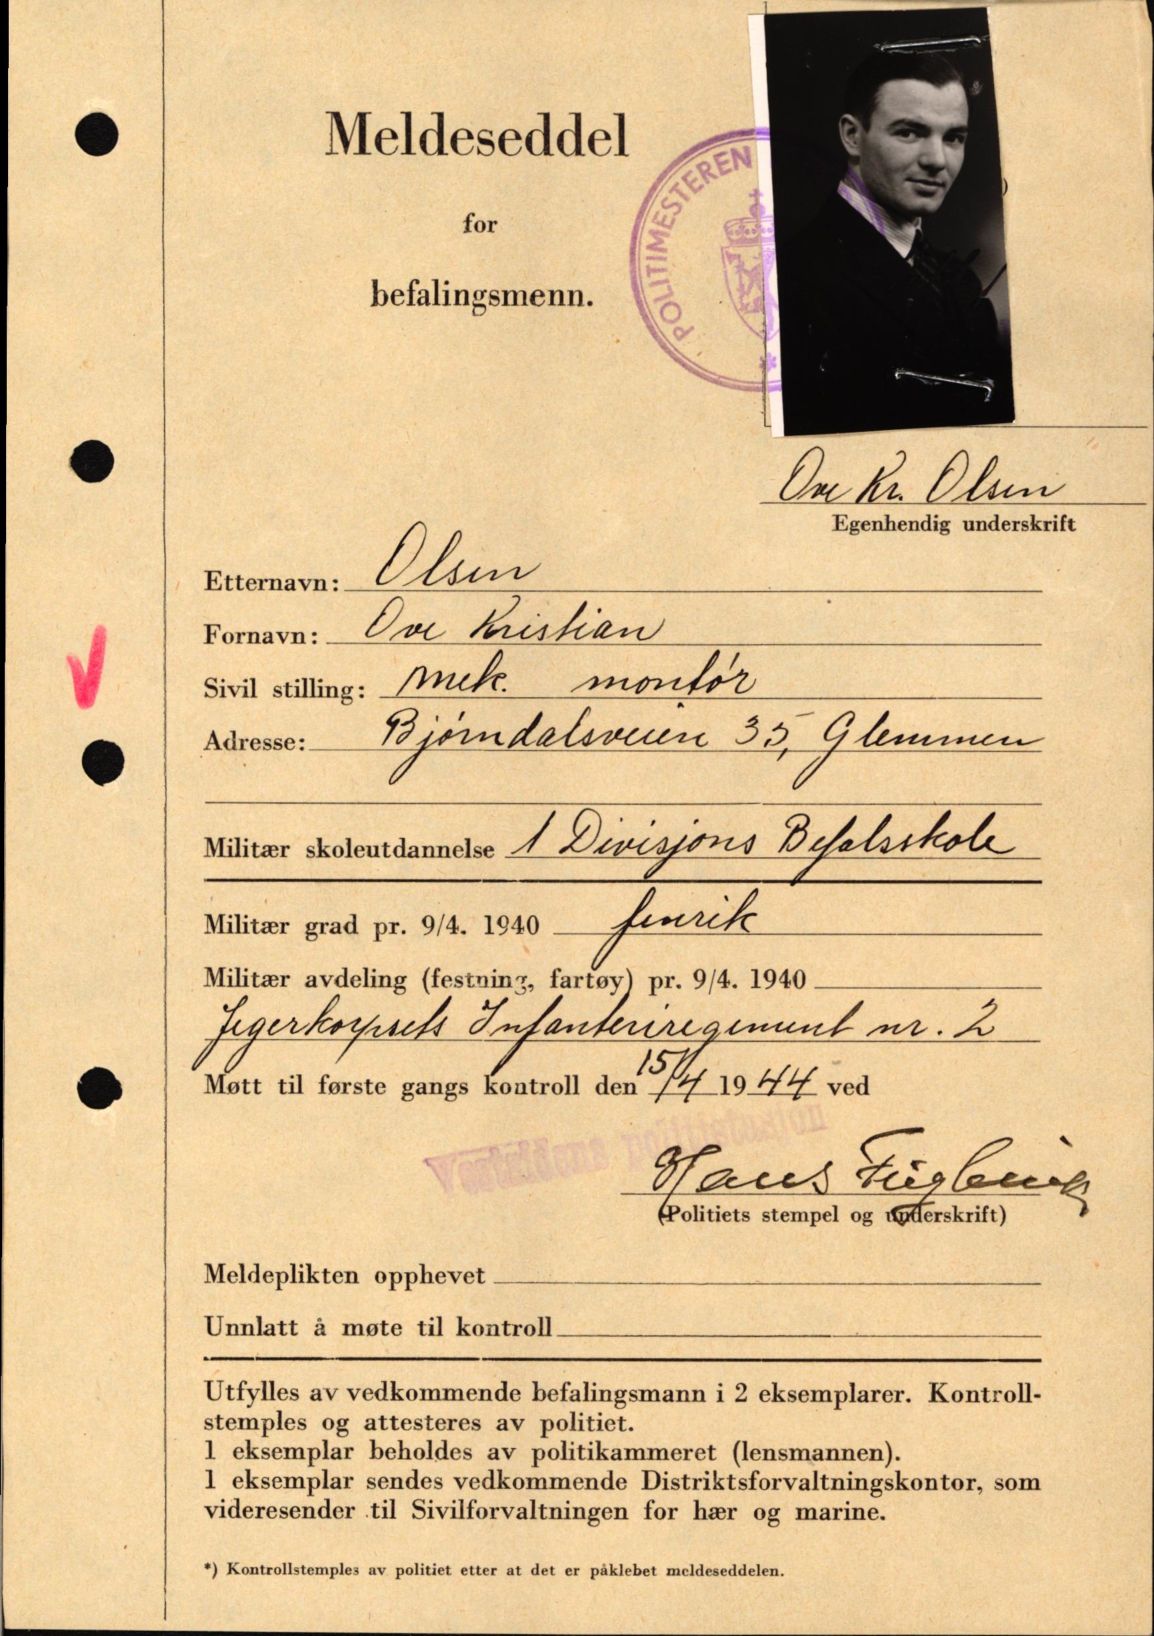 Meldeseddel
for
befalingsmenn.
POLITIMESTEREN
Ove Kr. Olsen
Egenhendig underskrift
Etternavn: Olsen
Fornavn: Ove Kristian
Sivil stilling: Mek. montör
Adresse: Bjørndalsveien 35, Glemmen
Militær skoleutdannelse 1 Divisjons Befalsskole
Militær grad pr. 9/4. 1940 fenrik
Militær avdeling (festning, fartøy) pr. 9/4. 1940
Jegerkorpsets Infanteriregiment nr. 2
Møtt til første gangs kontroll den 15/4 1944 ved
Hans
(Politiets stempel og underskrift)
Meldeplikten opphevet
Unnlatt å møte til kontroll
Utfylles av vedkommende befalingsmann i 2 eksemplarer. Kontroll-
stemples og attesteres av politiet.
1 eksemplar beholdes av politikammeret (lensmannen).
1 eksemplar sendes vedkommende Distriktsforvaltningskontor, som
videresender til Sivilforvaltningen for hær og marine.
*) Kontrollstemples av politiet etter at det er påklebet meldeseddelen.